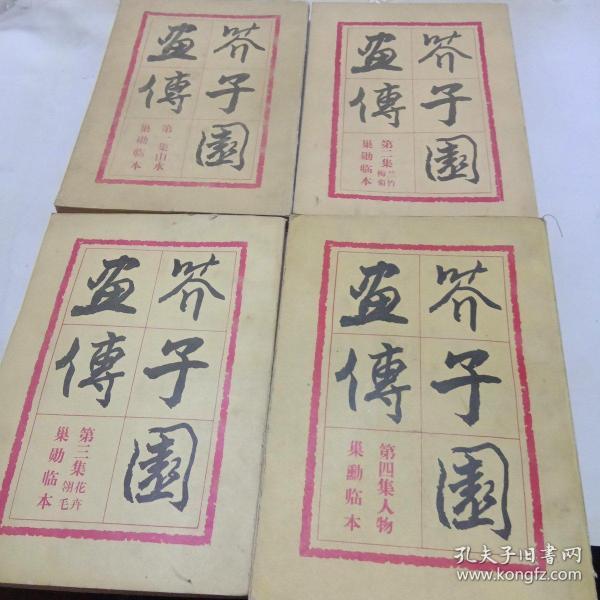 芥子园
画传
第一集山水
巢勋临本
芥子园
画传
第二集兰竹梅菊
巢勋临本
芥子园
画传
第三集花卉翎毛
巢勋临本
芥子園
画傳
第四集人物
巢勳临本
孔夫子旧书网
www.kongfz.com